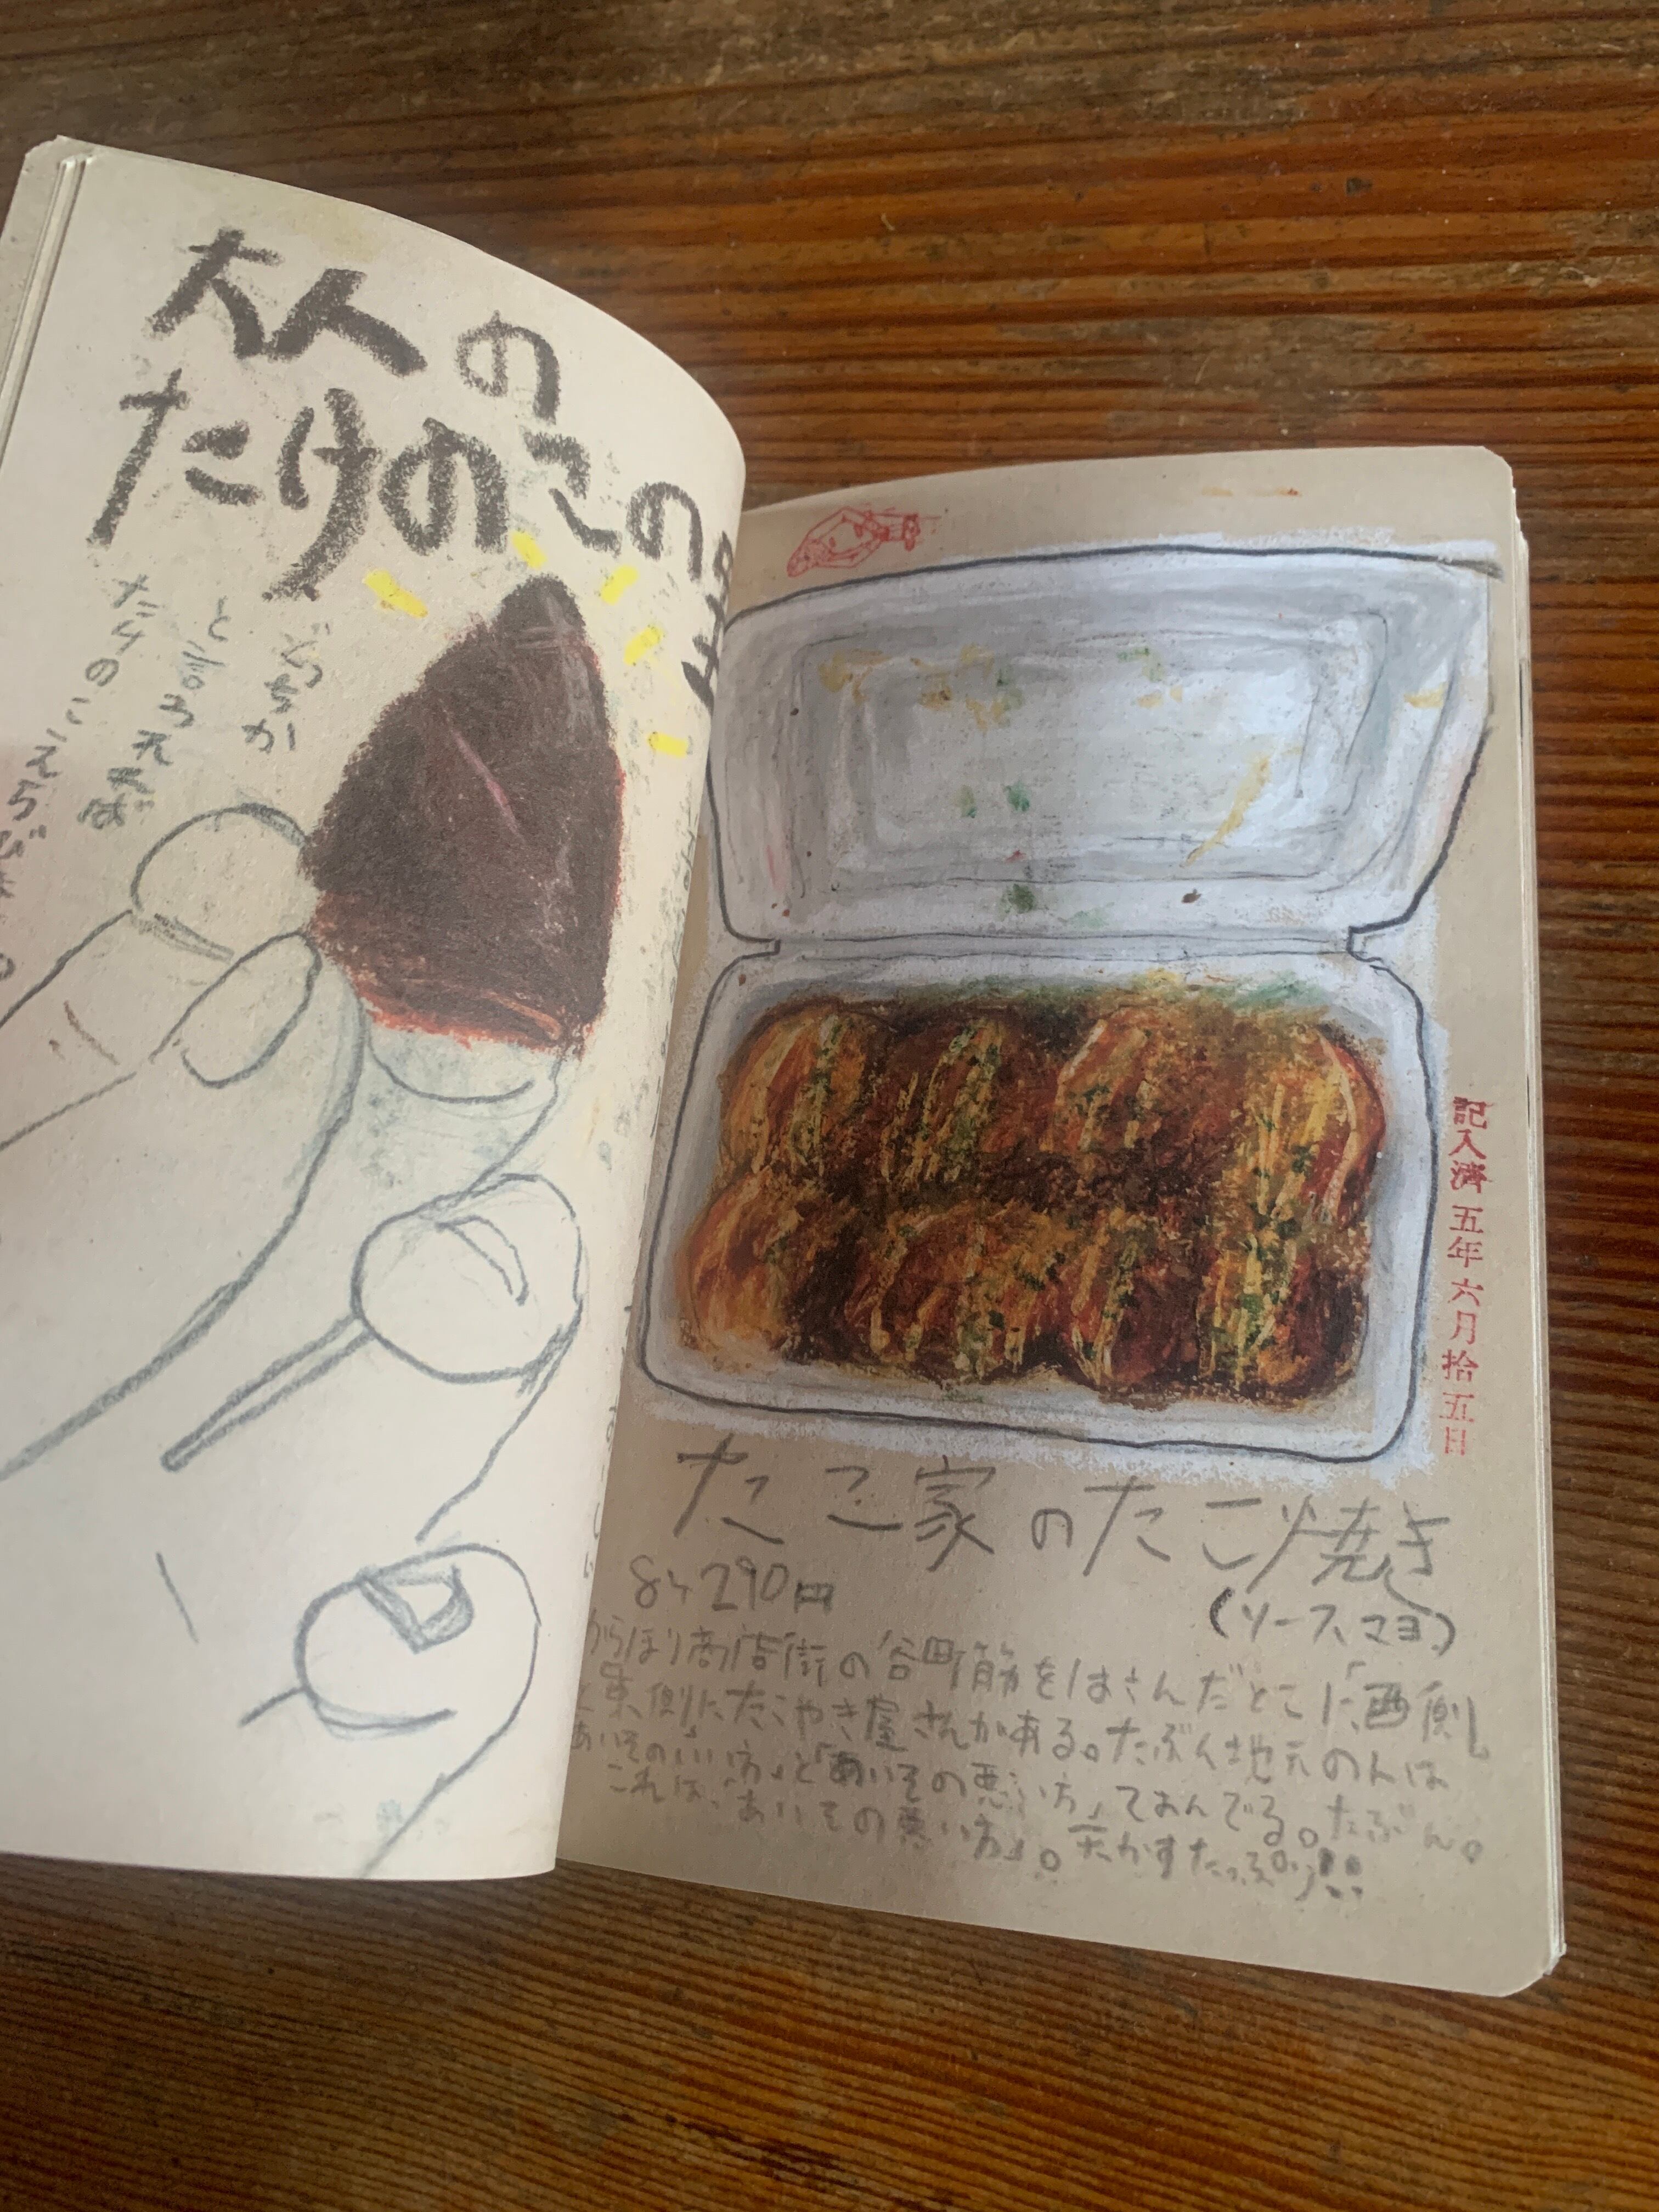 大人の
たけのこの
どちらか
と言われれば
たけのこえらび
記入済 五年六月拾五日
たこ家のたこ焼き
8ケ290円
(ソースマヨ)
からほり商店街の谷町筋をはさんだとこに、西側
と東側にたこやき屋さんがある。たぶん地元のんは
「あいその いい方」と「あいその悪い方」ておんでる。たぶん。
これは、「あいその悪い方」。天かすたっぷり!!